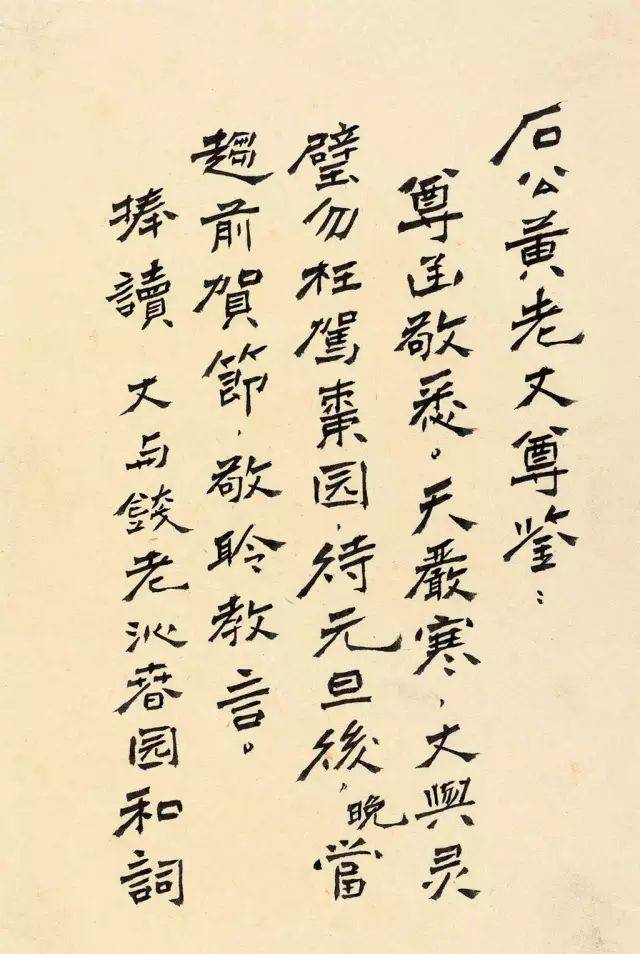 石公黃老丈尊鉴：
尊函敬悉。天嚴寒，丈與灵
璧勿枉駕棗园，待元旦後，晚當
趨前賀節，敬聆教言。
捧讀 丈与錢老沁春园和詞